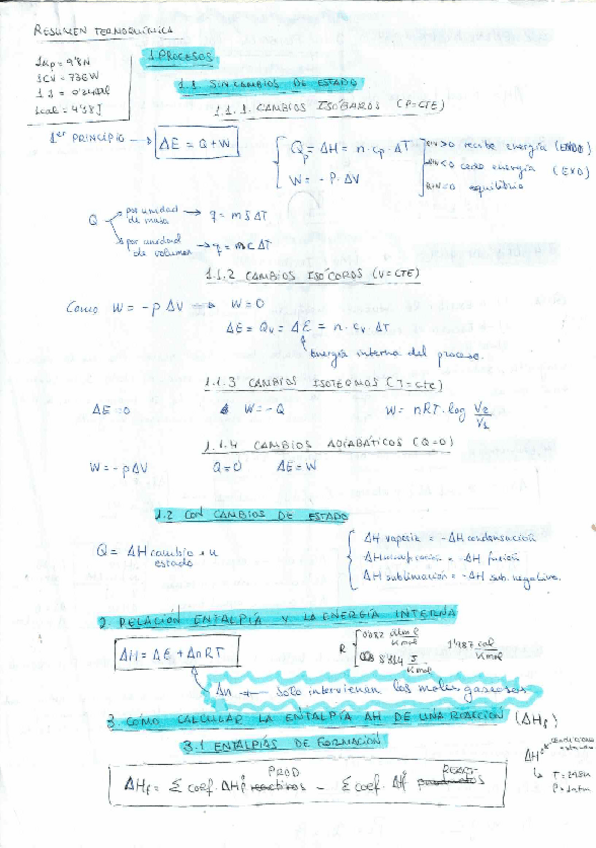 RESUMEN TERMOQUÍMICA
1Kp = 9'8N
1CV = 736W
1J = 0'24cal
1cal = 4'18J
1 PROCESOS
1.1 SIN CAMBIOS DE ESTADO
1.1.1. CAMBIOS ISÓBAROS (P=CTE)
1er PRINCIPIO → ΔE = Q+W
Qp = ΔH = n·cp·ΔT
W = -P·ΔV
>0 recibe energía (ENDO)
<0 cede energía (EXO)
=0 equilibrio
Q
por unidad de masa → q = m S ΔT
por unidad de volumen → q = m C ΔT
1.1.2 CAMBIOS ISÓCOROS (V=CTE)
Como W = -p ΔV → W=0
ΔE = Qv = ΔE = n·cv·ΔT
Energía interna del proceso.
1.1.3 CAMBIOS ISOTERMOS (T=cte)
ΔE=0 W=-Q W= nRT·log V2/V1
1.1.4 CAMBIOS ADIABÁTICOS (Q=0)
W=-pΔV Q=0 ΔE=W
1.2 CON CAMBIOS DE ESTADO
Q = ΔH cambio estado · n
ΔH vaporiz = -ΔH condensación
ΔH = -ΔH fusión
ΔH sublimación = -ΔH sub. negativa.
2. RELACIÓN ENTALPÍA Y LA ENERGÍA INTERNA
ΔH = ΔE + ΔnRT
R
0'082 atm l/K mol
8'314 J/K mol
1'987 cal/K mol
Δn → Solo intervienen los moles gaseosos
3. CÓMO CALCULAR LA ENTALPÍA ΔH DE UNA REACCIÓN (ΔHf)
3.1 ENTALPÍAS DE FORMACIÓN
PROD REACT
ΔHf = Σ coef. ΔHf° reactivos - Σ coef. ΔHf° productos
ΔH°
P=1atm